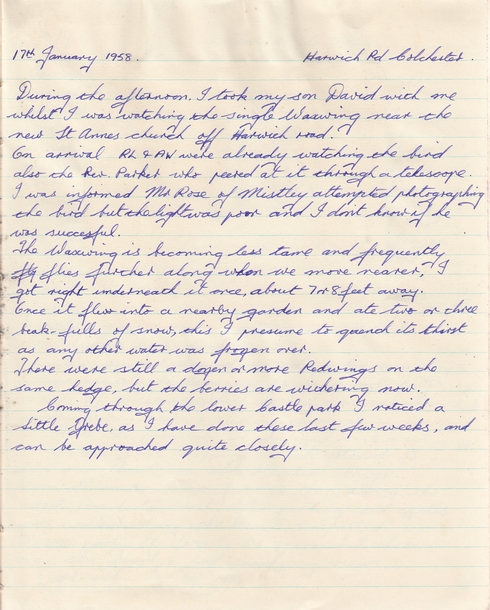 17th January 1958. Harwich Rd Colchester.
During the afternoon. I took my son David with me
whilst I was watching the single Waxwing near the
new St Annes church off Harwich road.
On arrival RL & AW were already watching the bird
also the Rev. Parker who peered at it through a telescope.
I was informed Mr Rose of Mistley attempted photographing
the bird but the light was poor and I don't know if he
was successful.
The Waxwing is becoming less tame and frequently
flies further along when we move nearer, I
got right underneath it once, about 7 or 8 feet away.
Once it flew into a nearby garden and ate two or three
beak-fulls of snow, this I presume to quench its thirst
as any other water was frozen over.
There were still a dozen or more Redwings on the
same hedge, but the berries are withering now.
Coming through the lower Castle park I noticed a
Little Grebe, as I have done these last few weeks, and
can be approached quite closely.